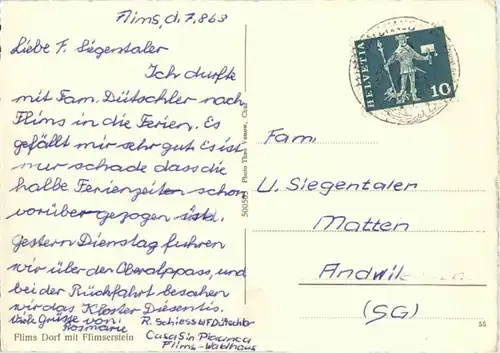 Flims, d. 7.8 63
Liebe F. Siegentaler
Ich durfte
mit Fam. Dütschler nach
Flims in die Ferien. Es
gefällt mir sehr gut Es ist
nur schade dass die
halbe Ferienzeiten schon
vorüber gezogen ist.
Gestern Dienstag fuhren
wir über den Oberalppass, und
bei der Rückfahrt besahen
wir das Kloster Disentis.
Viele Grüsse von:
Rosmarie
R. Schiess
Dütschler
Casa Sin Placunca
Flims-Waldhaus
Flims Dorf mit Flimserstein
500505 Photo Theo Vonow, Chur
HELVETIA
10
Fam.
U. Siegentaler
Matten
Andwil
(SG)
55